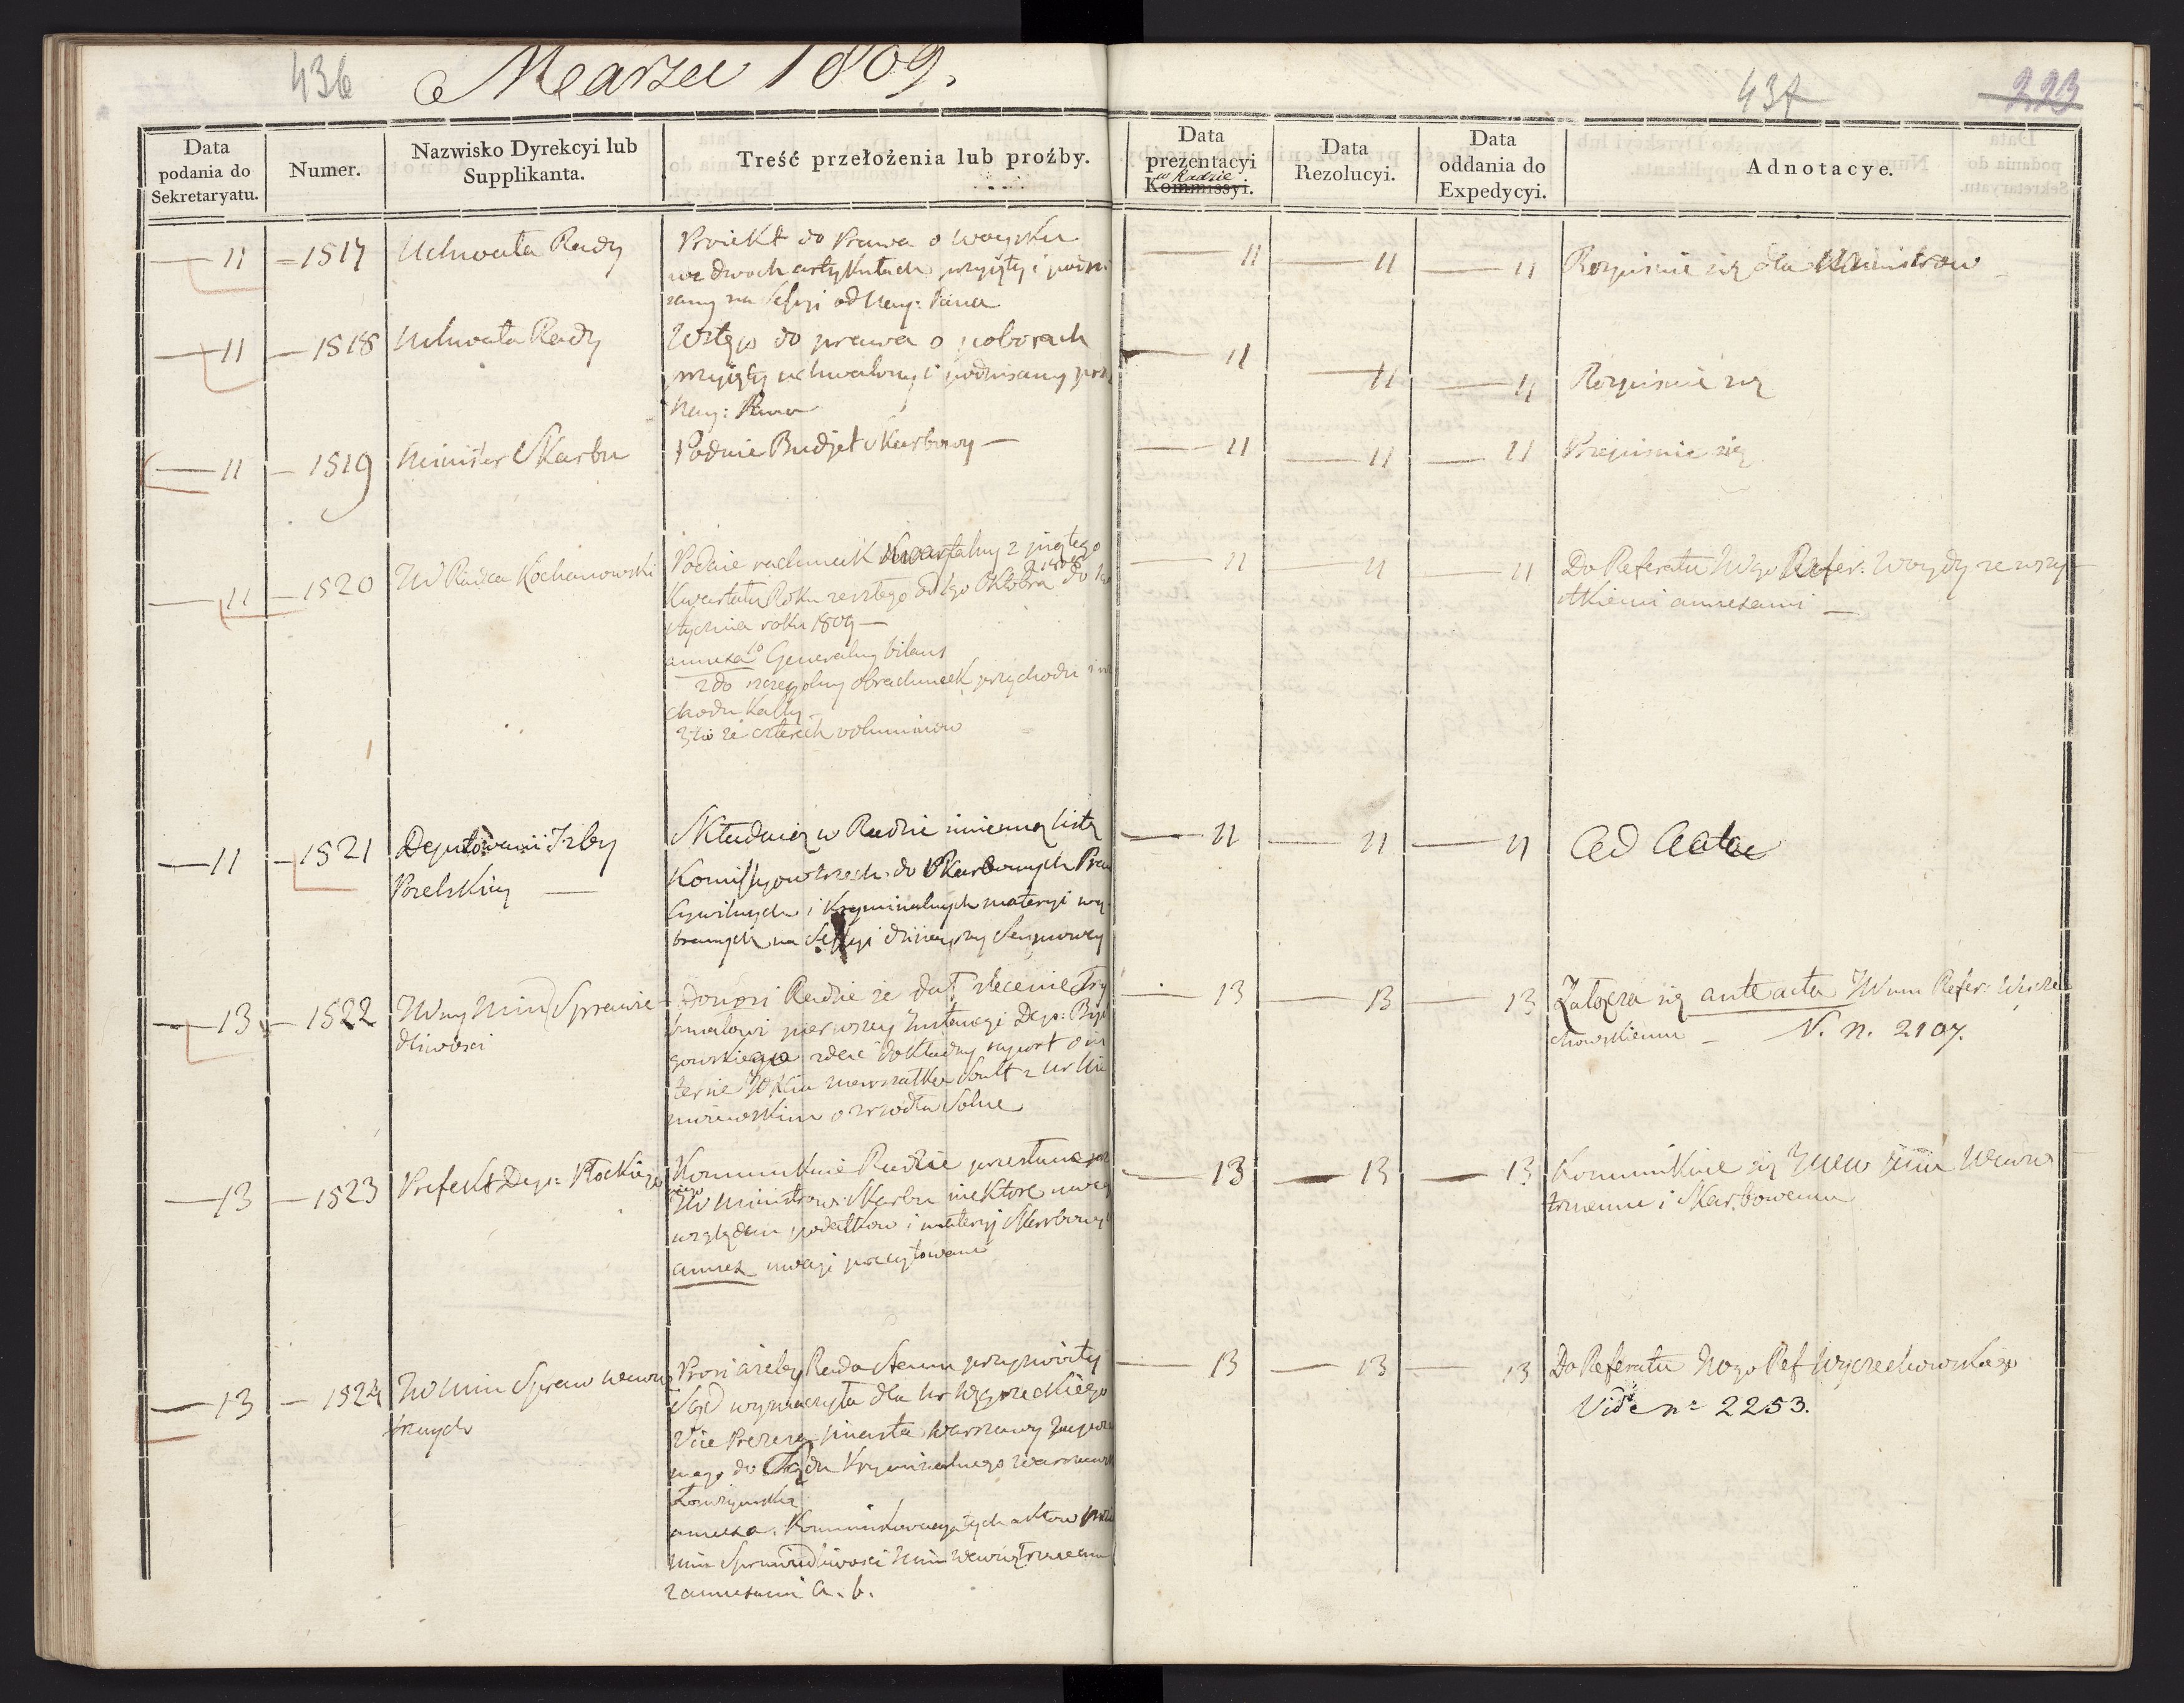 436
Marzec 1809.
437
223
Data podania do Sekretaryatu.
Numer.
Nazwisko Dyrekcyi lub Supplikanta.
Treść przełożenia lub proźby.
Data prezentacyi w Radzie Kommissyi.
Data Rezolucyi.
Data oddania do Expedycyi.
Adnotacye.
— 11 — 1517 Uchwała Rady
Proiekt do Prawa o woysku
we dwoch artykułach przyięty i podpi
sany na Sessyi od Nay: Pana
— 11 — 11 — 11 Rozpisuie się dla Ministrow
— 11 — 1518 Uchwała Rady
Wstęp do prawa o poborach
przyięty uchwalony i podpisany prz
Nay: Pana
— 11 — 11 — 11 Rozpisuie się
— 11 — 1519 Minister Skarbu
Podaie Budjet Skarbowy —
— 11 — 11 — 11 Przepisuie się
— 11 — 1520 JW Radca Kochanowski
Podaie rachunek kwartalny z
Kwartału Roku zeszłego od 1go Oktobra do
stycznia roku 1809 —
annexa 1o Generalny bilans
2do szczegolny obrachunek przychodu i
chodu Kassy —
3tio ze czterech voluminow
— 11 — 11 — 11 Do Referatu Wgo Refer: Woydy ze wszy
stkiemi annexami —
— 11 — 1521 Deputowani Izby
Poselskiey —
Składaią w Radzie imienną listę
Komissyow trzech do Skarbowych Praw
Cywilnych i Kryminalnych materyi wy
branych na Sessyi dzisieyszey Seymowey
— 11 — 11 — 11 Ad Acta
— 13 — 1522 JWny Min Sprawie
dliwości
donosi Radzie że dał zlecenie Try
bunałowi pierwszey Instancyi Dep: Byd
goskiego zdać dokładny raport o in
teresie Marszałka Soult z Ur
o zrzodła Solne
— 13 — 13 — 13 Załącza się ante acta JWmu Refer:
chowskiemu — V. n. 2107.
— 13 — 1523 Prefekt Dep: Płockiego
Kommunikuie Radzie przesłane
JW Ministrowi Skarbu niektore uwagi
względem podatkow i materyi Skarbowych
annex uwagi pocytowane
— 13 — 13 — 13 Kommunikuie się Wewnę
trznemu i Skarbowemu
— 13 — 1524 JW Min Spraw Wewnę
trznych
Prosi ażeby Rada Stanu przyzwoity
Sąd wyznaczyła dla Ur Węgrzeckiego
Vice Prezesa miasta Warszawy
nego do Sądu Kryminalnego Warszaws
annexa. Kommunikowanych aktow przez
Min Sprawiedliwości Min Wewnętrznemu
z annexami a. b.
— 13 — 13 — 13 Do Referatu Ref Wyczechowskiego
Vide no 2253.